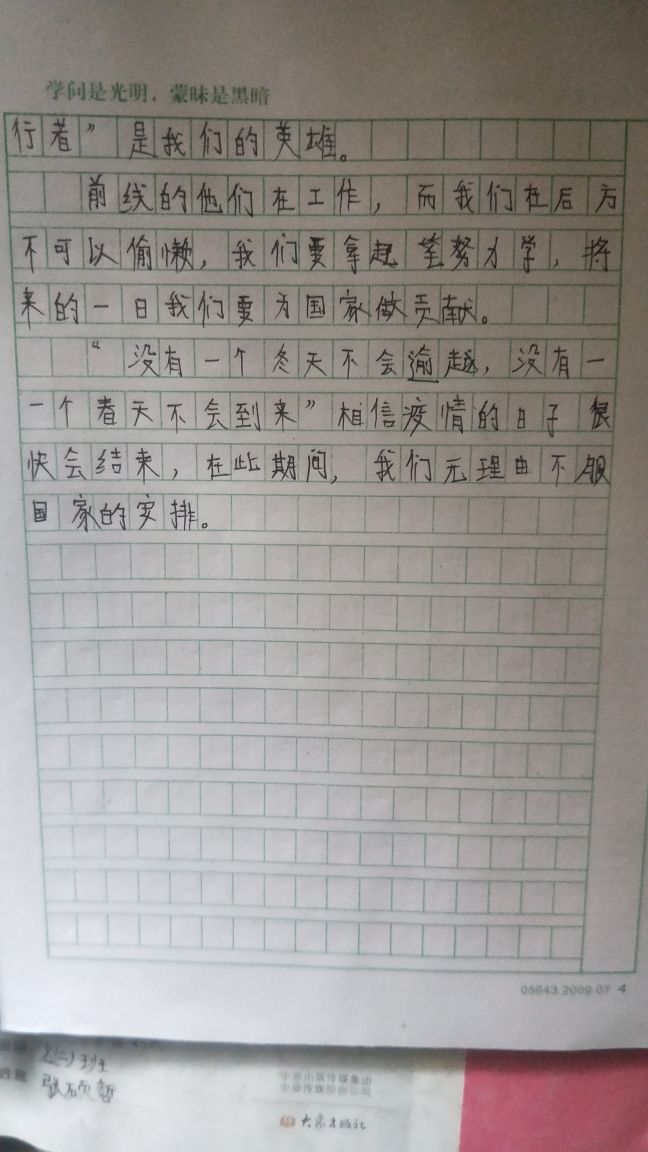 学问是光明，蒙昧是黑暗
行者”是我们的英雄。
前线的他们在工作，而我们在后方
不可以偷懒，我们要拿起笔努力学，将
来的一日我们要为国家做贡献。
“没有一个冬天不会逾越，没有一
一个春天不会到来”相信疫情的日子很
快会结束，在此期间，我们无理由不服
国家的安排。
05643.2009.07 4
七(二)班
张硕哲
中原出版传媒集团
中原传媒股份公司
大象出版社